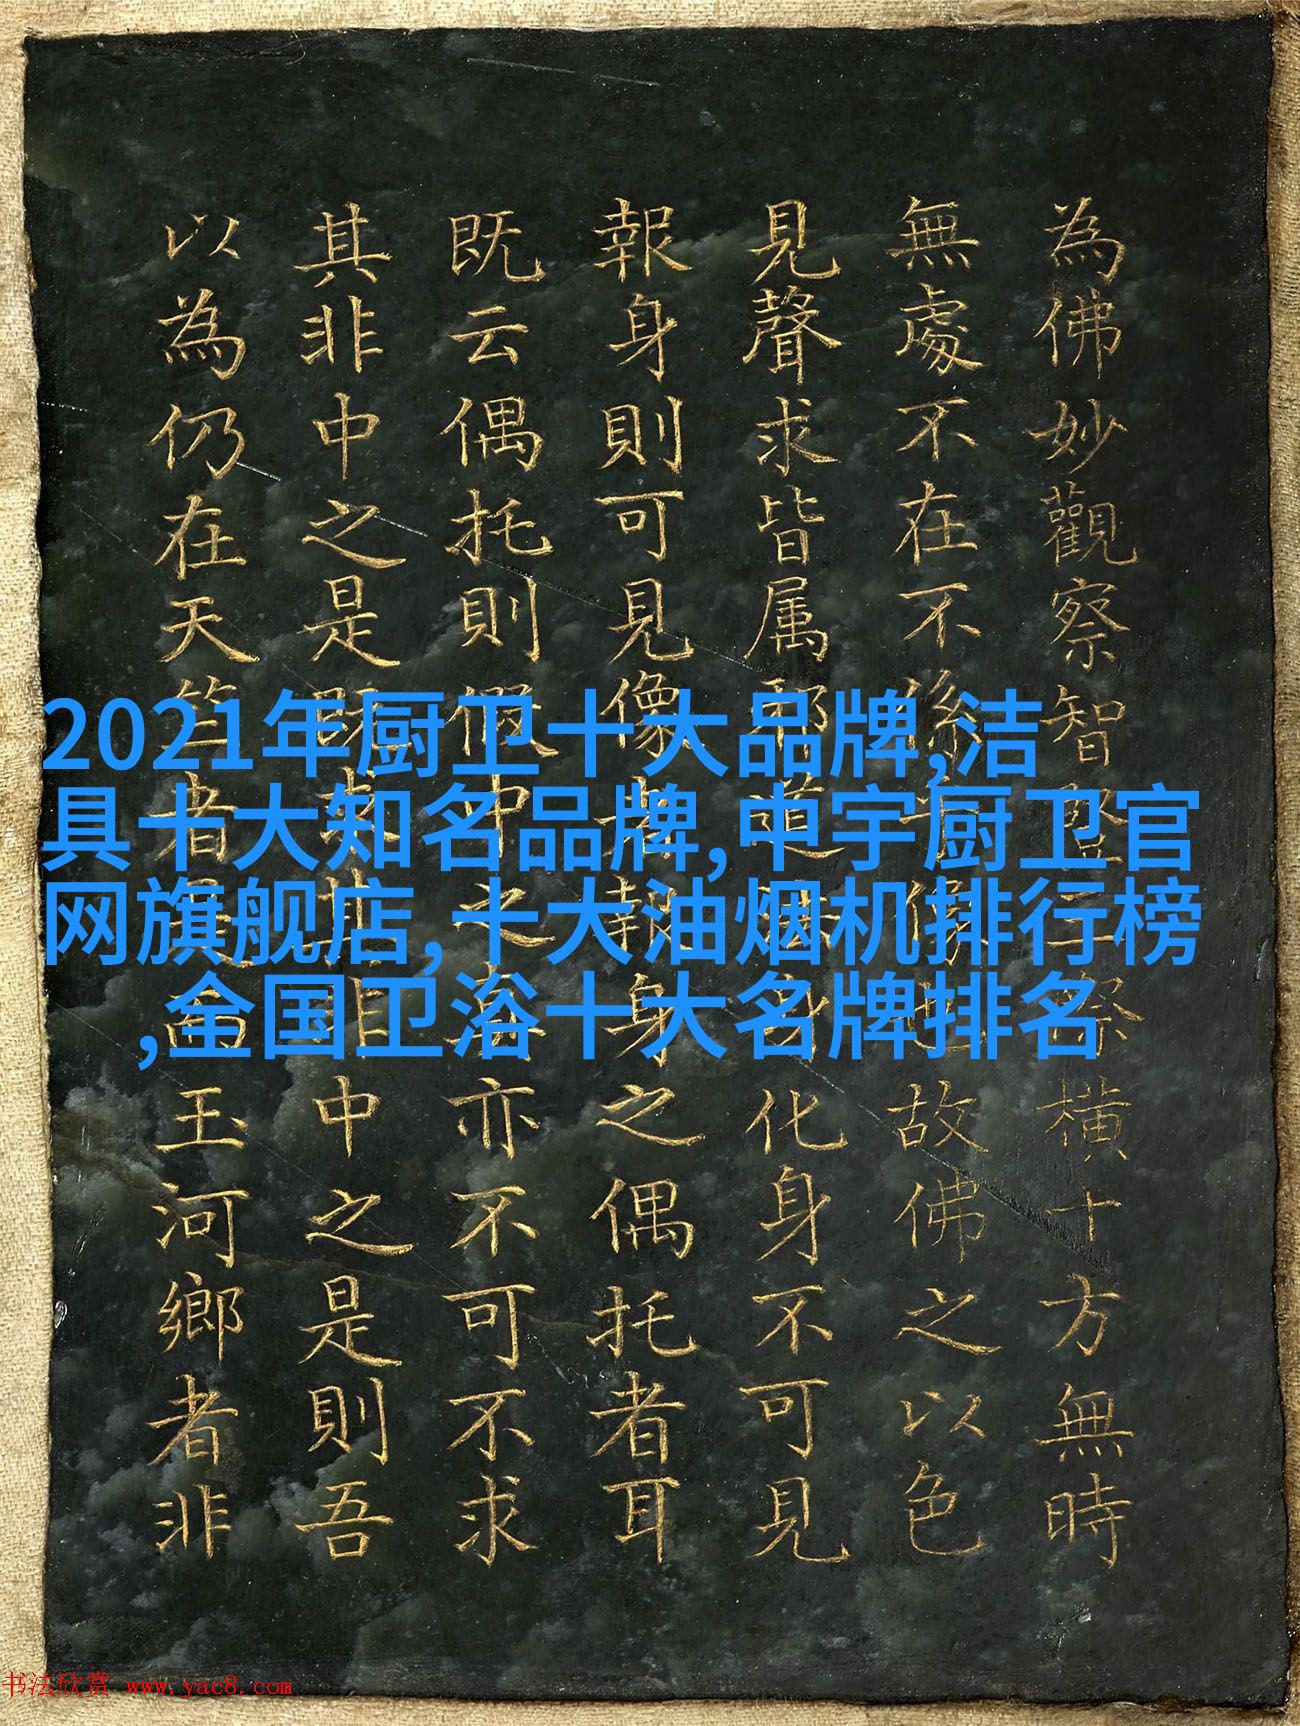 2021年厨卫十大品牌,洁
具十大知名品牌,中宇厨卫官
网旗舰店,十大油烟机排行榜
,全国卫浴十大名牌排名
為佛妙觀察智三際橫十方無時
無處不在不係像也故佛之以色
見聲求皆属邪道身化身不可見
報身則可見像者報身之偶托者耳
既云偶托則假中之真亦不可不求
其非中之是非中之是則吾
以為仍在天竺者是而玉河鄉者非
书法欣赏 www.yac8.com